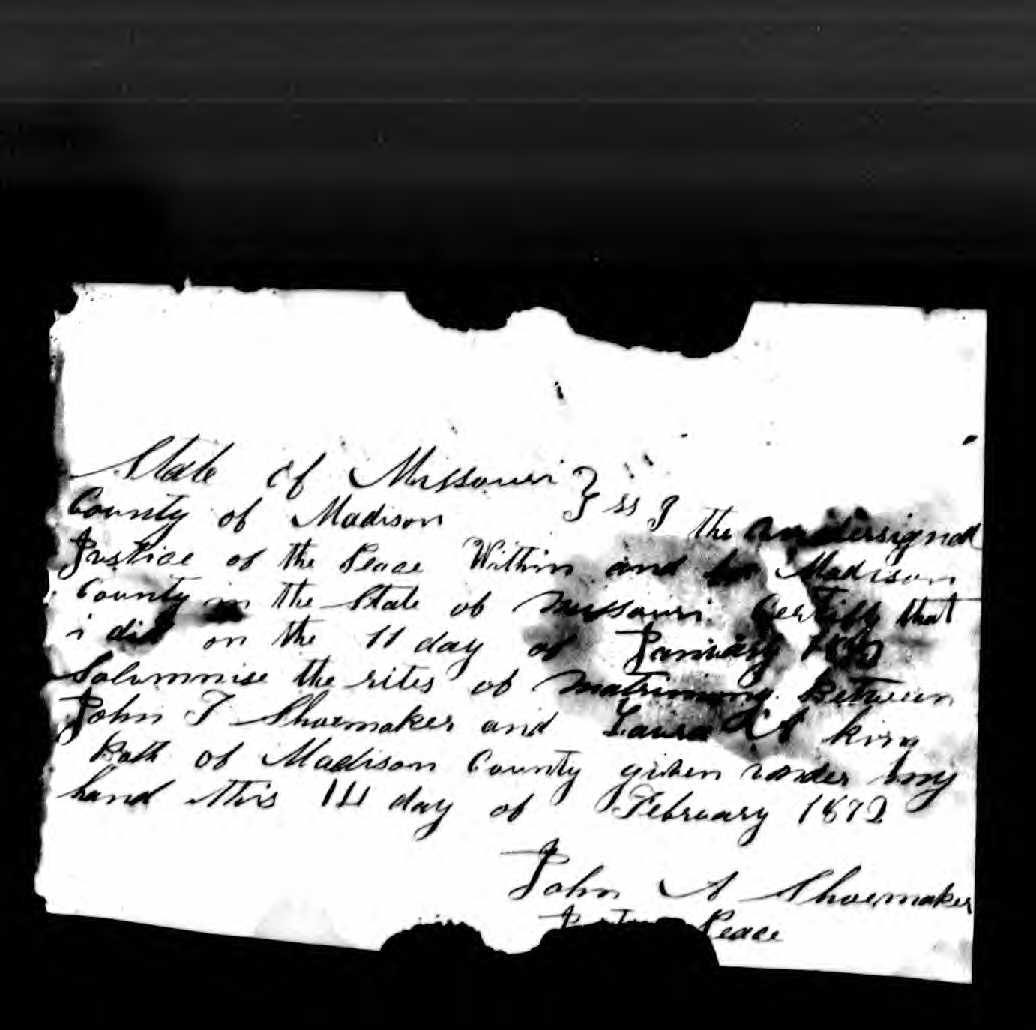 State of Missouri } ss
County of Madison I the undersigned
Justice of the Peace Within and for Madison
County in the State of Missouri Certify that
i did on the 11 day of January
Solumnise the rites of Matrimony Between
John T Shoemaker and Laura A King
Both of Madison County given under my
hand this 14 day of February 1872
John A Shoemaker
Peace